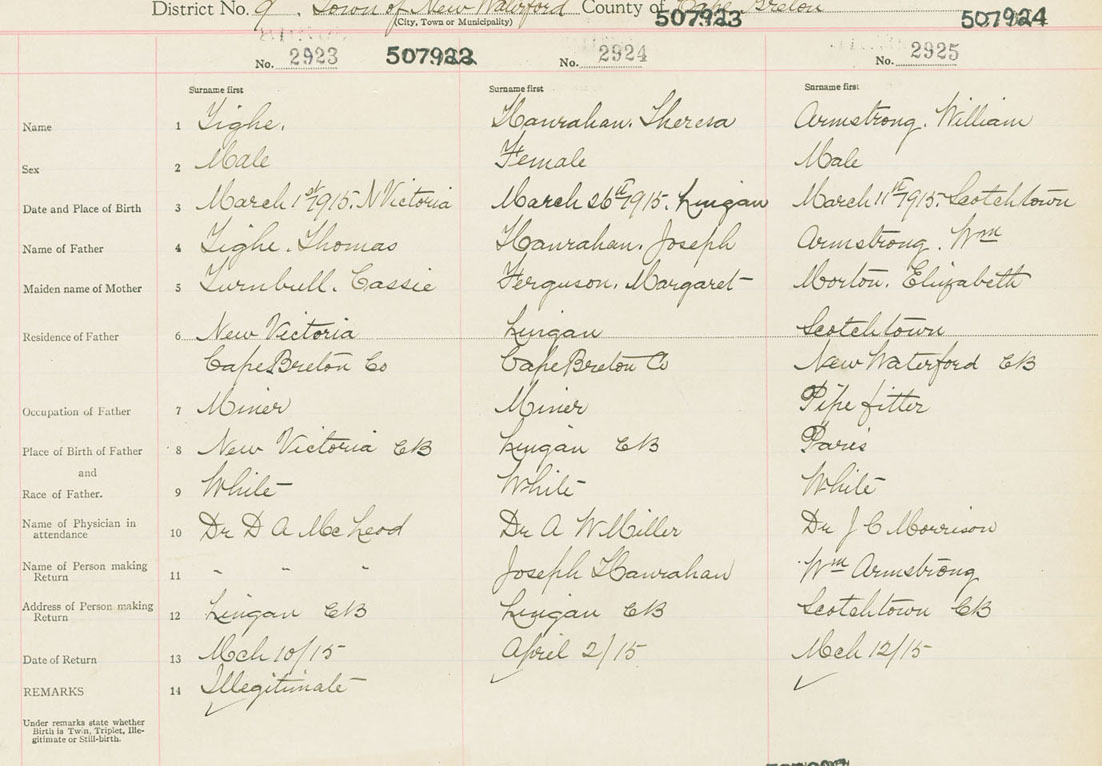 District No. 9. Town of New Waterford County of Cape Breton
(City, Town or Municipality)
507923
507924
No. 2923 507922 No. 2924 No. 2925
Surname first Surname first Surname first
Name 1 Tighe. Hanrahan. Theresa Armstrong. William
Sex 2 Male Female Male
Date and Place of Birth 3 March 1st 1915. N Victoria March 26th 1915. Lingan March 11th 1915. Scotchtown
Name of Father 4 Tighe. Thomas Hanrahan. Joseph Armstrong. Wm
Maiden name of Mother 5 Turnbull. Cassie Ferguson. Margaret Morton. Elizabeth
Residence of Father 6 New Victoria Lingan Scotchtown
Cape Breton Co Cape Breton Co New Waterford CB
Occupation of Father 7 Miner Miner Pipe fitter
Place of Birth of Father 8 New Victoria CB Lingan CB Paris
and
Race of Father. 9 White White White
Name of Physician in attendance 10 Dr D A McLeod Dr A W Miller Dr J C Morrison
Name of Person making Return 11 " " " Joseph Hanrahan Wm Armstrong
Address of Person making Return 12 Lingan CB Lingan CB Scotchtown CB
Date of Return 13 Mch 10/15 April 2/15 Mch 12/15
REMARKS 14 Illegitimate
Under remarks state whether
Birth is Twin, Triplet, Ille-
gitimate or Still-birth.